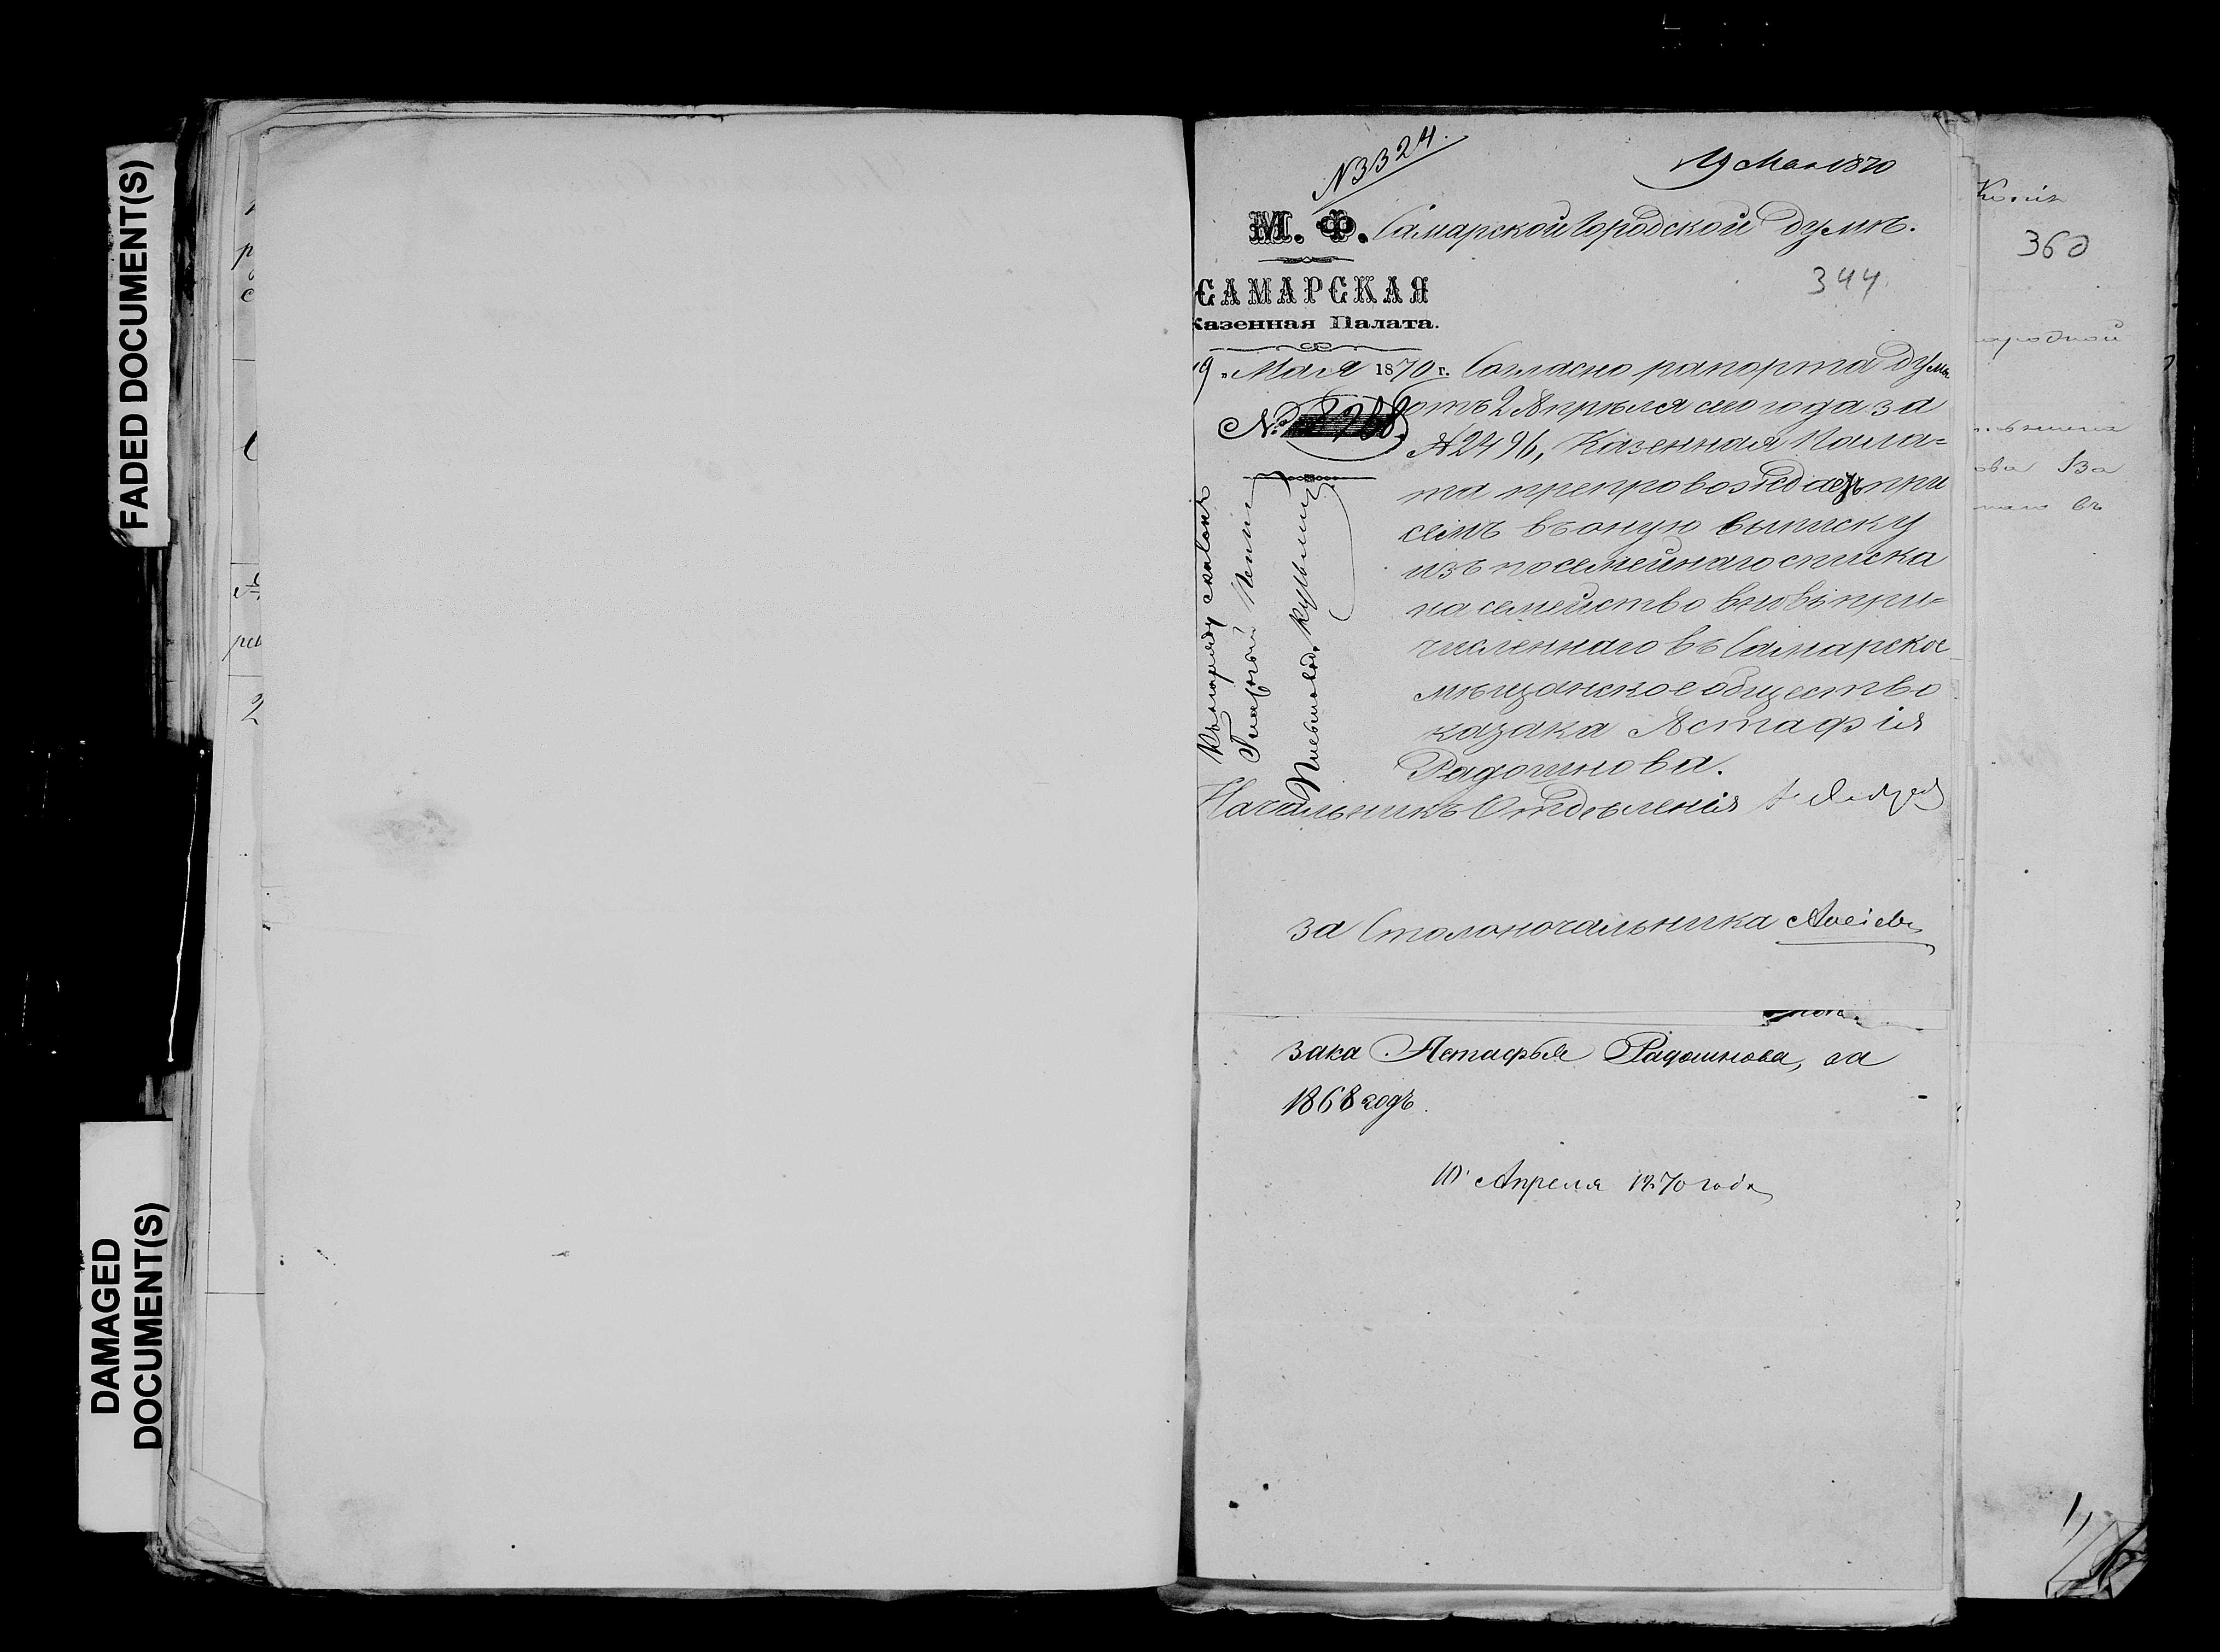 FADED DOCUMENT(S)
DAMAGED
DOCUMENT(S)
N3324.
19 Мая 1870
М. Ф.
Самарской Городской Думѣ.
344
САМАРСКАЯ
Казенная Палата.
19 " Мая 1870 г.
№
Согласно рапорта Думы
отъ 2 Апрѣля сего года за
№ 2496, Казенная Пала=
та препровождаетъ при
семъ въ оную выписку
изъ посемейнаго списка
на семейство вновь при=
численнаго въ Самарское
мѣщанское общество
казака Астафія
Радошнова.
Начальникъ Отдѣленія
За Столоначальника
зака Астафья Радошнова, за
1868 годъ.
10 Апреля 1870 года
Копія
360
ова За
въ